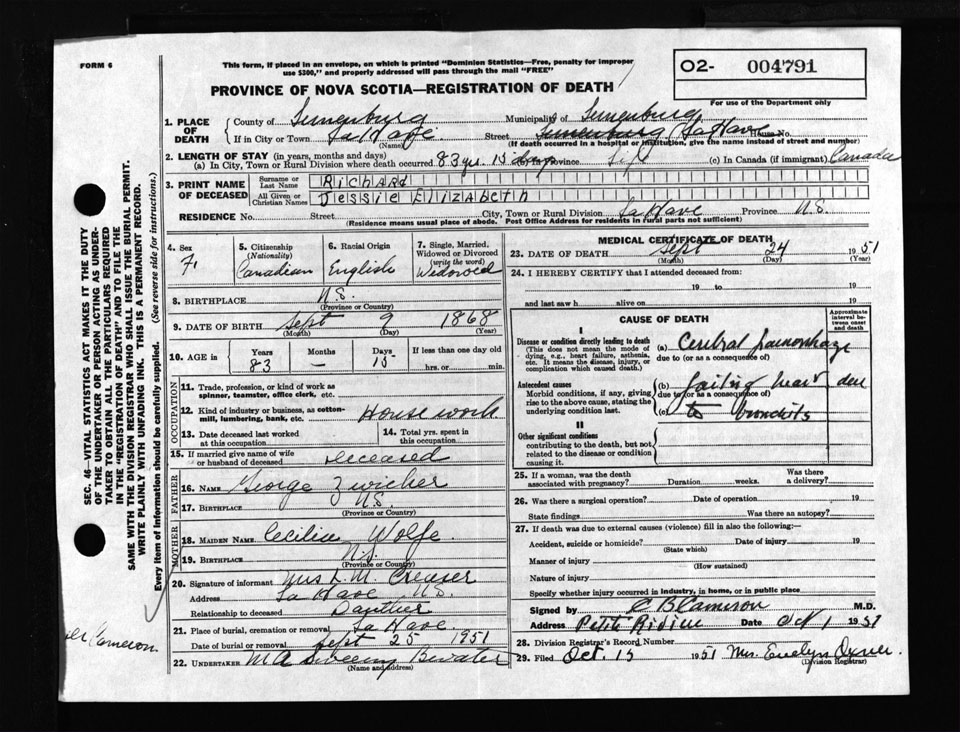 FORM 6
This form, if placed in an envelope, on which is printed "Dominion Statistics—Free, penalty for improper
use $300," and properly addressed will pass through the mail "FREE"
PROVINCE OF NOVA SCOTIA—REGISTRATION OF DEATH
O2- 004791
For use of the Department only
1. PLACE OF DEATH
County of Lunenburg Municipality of Lunenburg
If in City or Town LaHave Street Lunenburg LaHave House No.
(Name) (If death occurred in a hospital or institution, give the name instead of street and number)
2. LENGTH OF STAY (in years, months and days)
(a) In City, Town or Rural Division where death occurred 83 yrs. 15 days province (c) In Canada (if immigrant) Canada
3. PRINT NAME OF DECEASED
Surname or Last Name Richard
All Given or Christian Names Jessie Elizabeth
RESIDENCE No. Street City, Town or Rural Division LaHave Province N.S.
(Residence means usual place of abode. Post Office Address for residents in rural parts not sufficient)
4. Sex F.
5. Citizenship (Nationality) Canadian
6. Racial Origin English
7. Single, Married, Widowed or Divorced (write the word) Widowed
8. BIRTHPLACE N.S.
(Province or Country)
9. DATE OF BIRTH Sept 9 1868
(Month) (Day) (Year)
10. AGE in Years 83 Months — Days 15 If less than one day old
hrs. or min.
OCCUPATION
11. Trade, profession, or kind of work as spinner, teamster, office clerk, etc.
12. Kind of industry or business, as cotton-mill, lumbering, bank, etc. House work
13. Date deceased last worked at this occupation
14. Total yrs. spent in this occupation
15. If married give name of wife or husband of deceased deceased
FATHER
16. NAME George Zwicker
17. BIRTHPLACE N.S.
(Province or Country)
MOTHER
18. MAIDEN NAME Cecilia Wolfe
19. BIRTHPLACE N.S.
(Province or Country)
20. Signature of informant Mrs L. M. Creaser
Address La Have N.S.
Relationship to deceased Daughter
21. Place of burial, cremation or removal La Have
Date of burial or removal Sept 25 1951
22. UNDERTAKER M A Sweeny B.water
(Name and address)
MEDICAL CERTIFICATE OF DEATH
23. DATE OF DEATH Sept 24 1951
(Month) (Day) (Year)
24. I HEREBY CERTIFY that I attended deceased from:
19 to 19
and last saw h alive on 19
CAUSE OF DEATH
Approximate interval between onset and death
I
Disease or condition directly leading to death
(This does not mean the mode of dying, e.g., heart failure, asthenia, etc. It means the disease, injury, or complication which caused death.)
(a) Cerebral haemorhage
due to (or as a consequence of)
Antecedent causes
Morbid conditions, if any, giving rise to the above cause, stating the underlying condition last.
(b) failing heart due
due to (or as a consequence of)
(c) to
II
Other significant conditions
contributing to the death, but not related to the disease or condition causing it.
25. If a woman, was the death associated with pregnancy? Duration weeks. Was there a delivery?
26. Was there a surgical operation? Date of operation 19
State findings Was there an autopsy?
27. If death was due to external causes (violence) fill in also the following:—
Accident, suicide or homicide? Date of injury 19
(State which)
Manner of injury
(How sustained)
Nature of injury
Specify whether injury occurred in industry, in home, or in public place
Signed by C B Cameron M.D.
Address Petite Riviere Date Oct 1 1951
28. Division Registrar's Record Number
29. Filed Oct. 15 1951 Mrs. Evelyn Oxner.
(Division Registrar)
SEC. 46—VITAL STATISTICS ACT MAKES IT THE DUTY
OF THE UNDERTAKER OR PERSON ACTING AS UNDER-
TAKER TO OBTAIN ALL THE PARTICULARS REQUIRED
IN THE "REGISTRATION OF DEATH" AND TO FILE THE
SAME WITH THE DIVISION REGISTRAR WHO SHALL ISSUE THE BURIAL PERMIT.
WRITE PLAINLY WITH UNFADING INK. THIS IS A PERMANENT RECORD.
Every item of information should be carefully supplied. (See reverse side for instructions.)
Dr Cameron